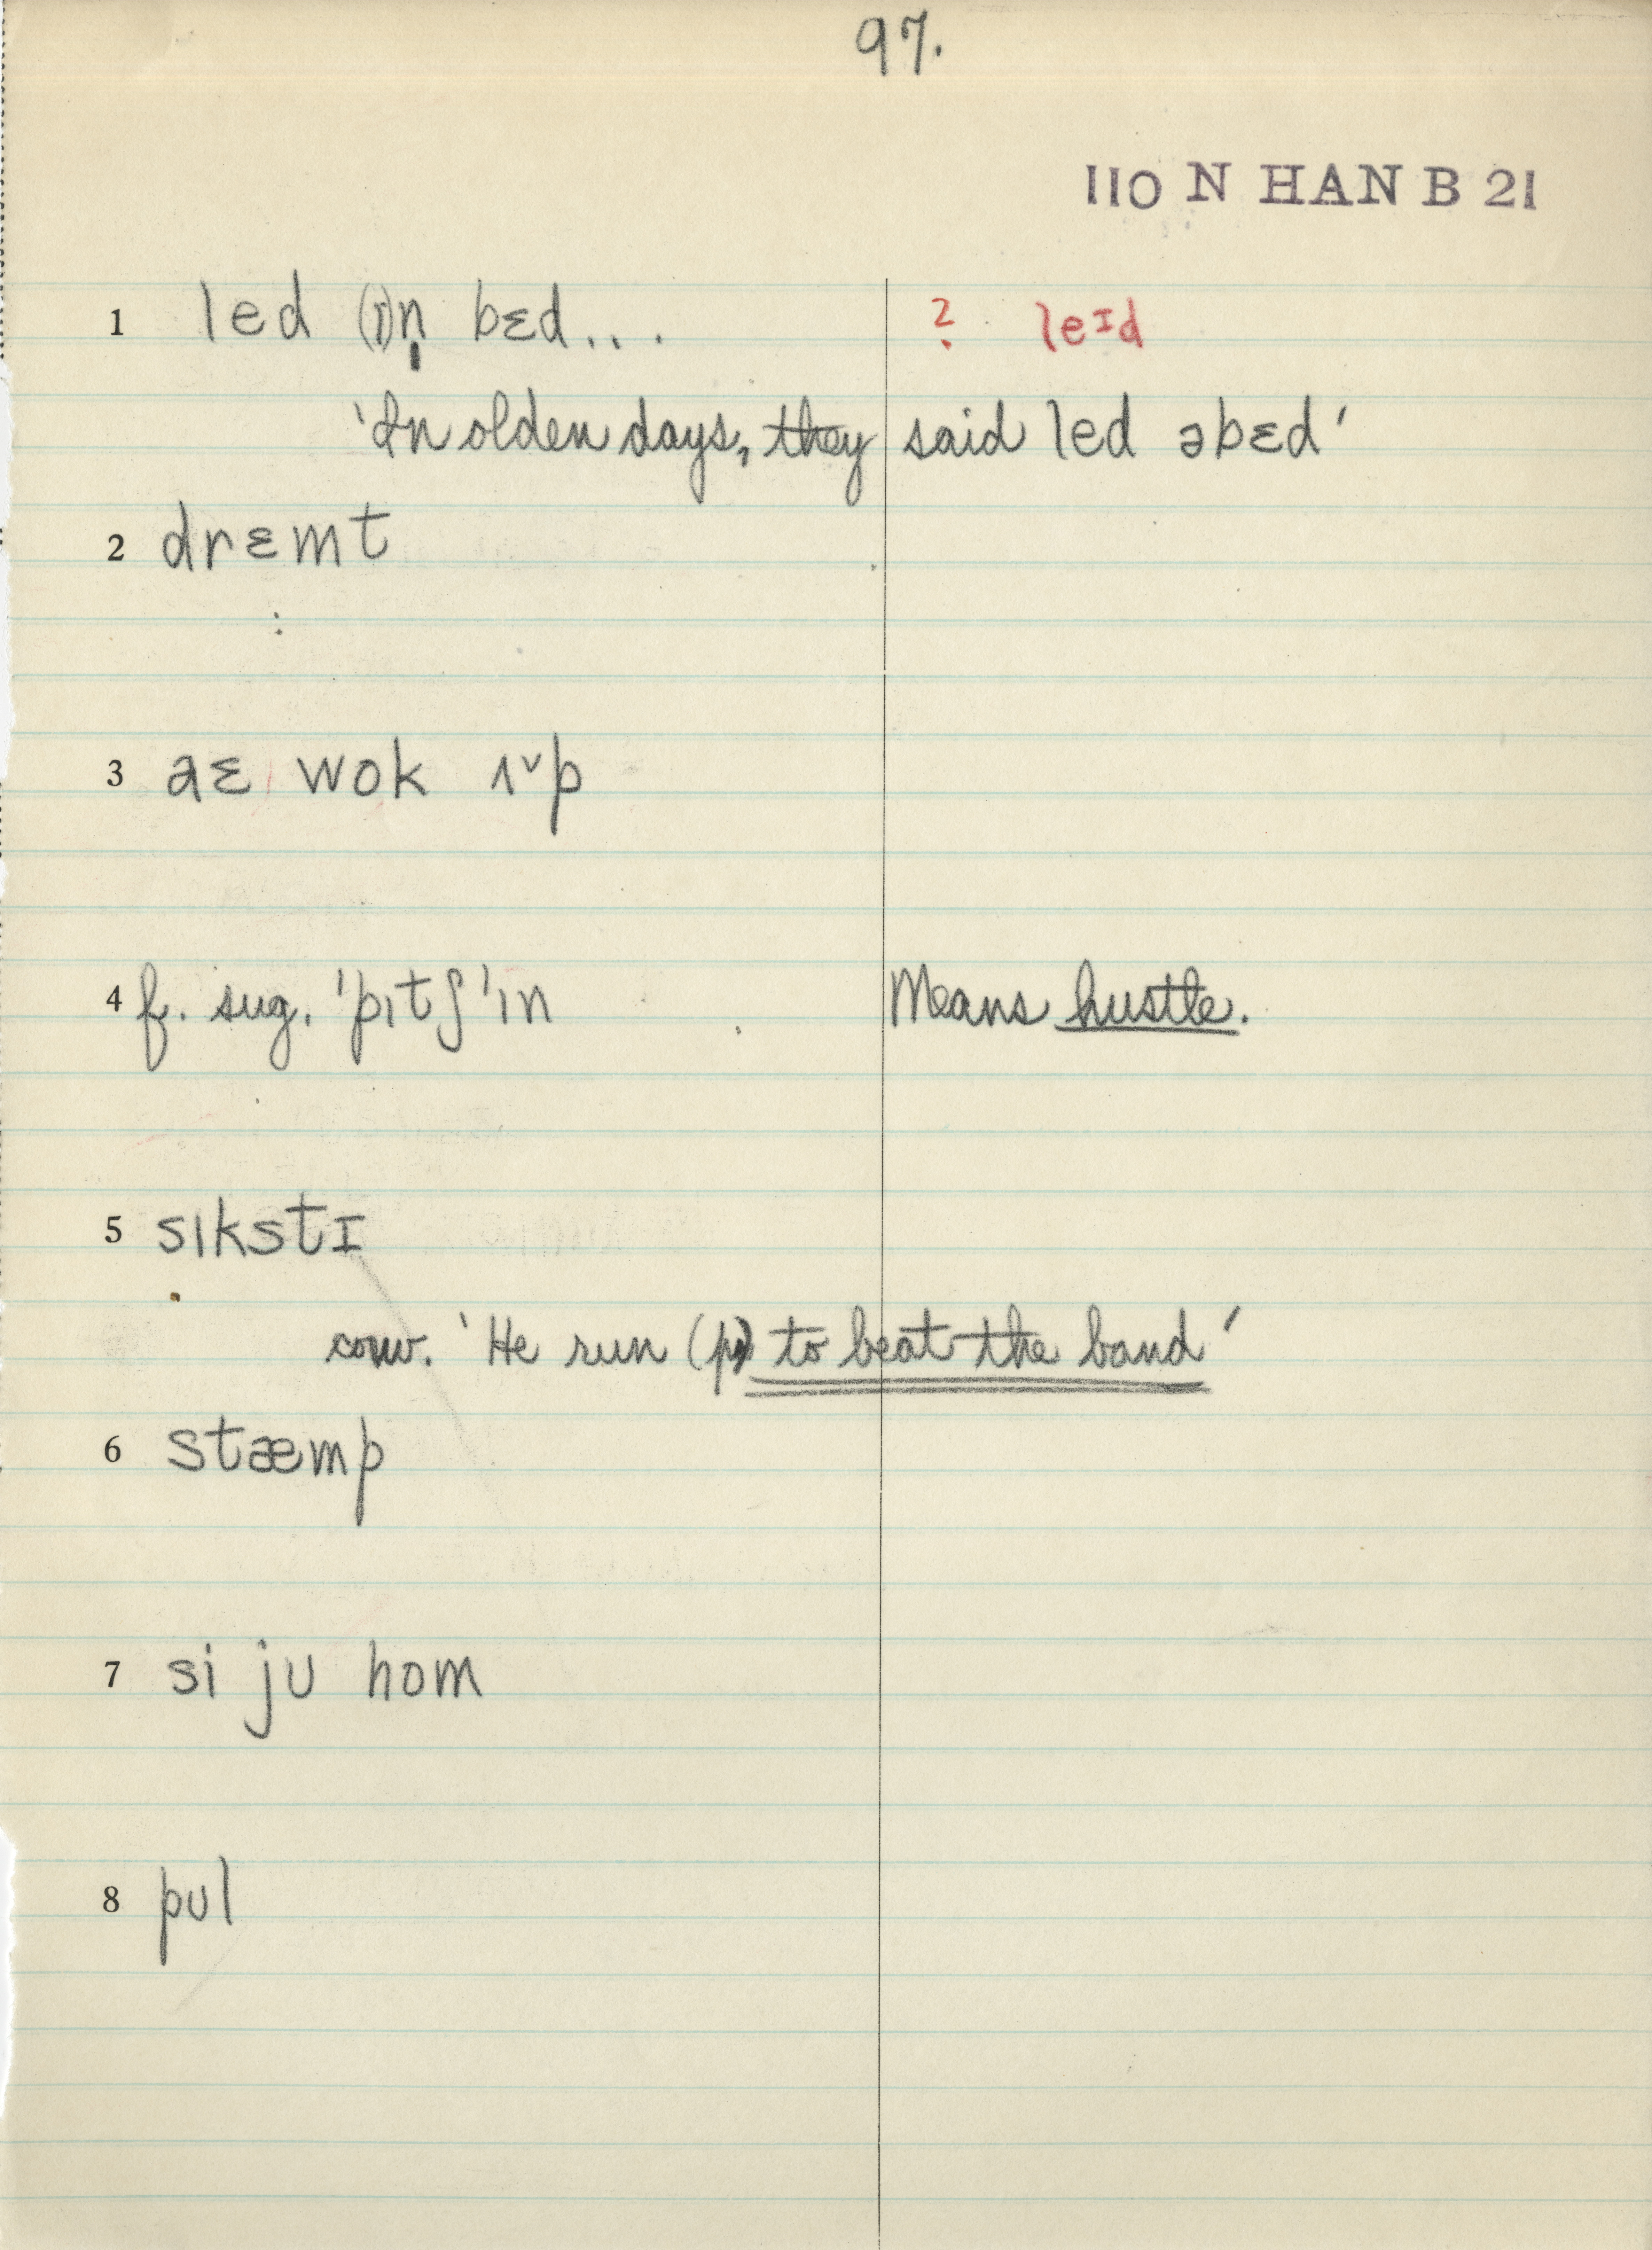 97.
110 N HAN B 21
1 led (ɪ)n̩ bɛd... ? leɪd
'In olden days, they said led əbɛd'
2 drɛmt
3 aɛ wok ʌˇp
4 f. sug. 'pıtʃ 'ın Means hustle.
5 sıkstɪ
conv. 'He run (pt) to beat the band'
6 stæmp
7 si ju hom
8 pul